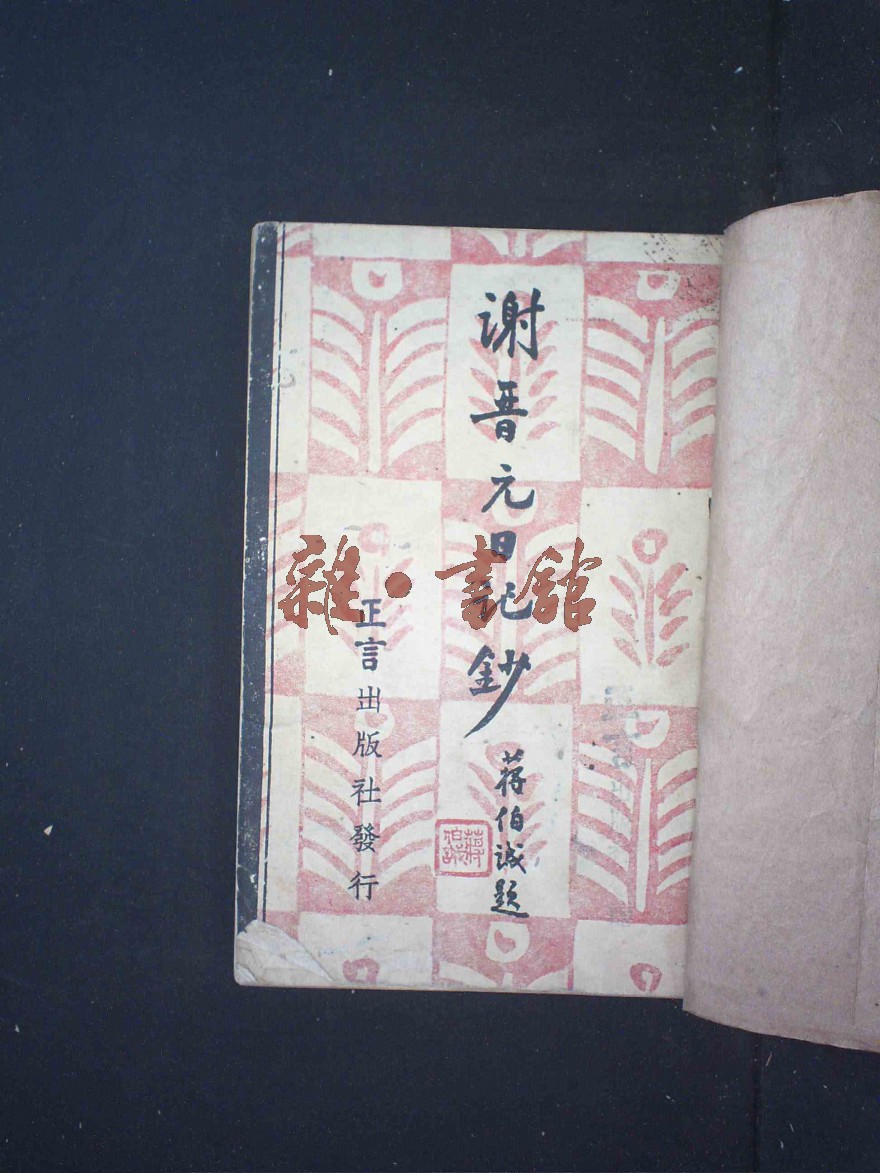 谢晋元日记鈔
蒋伯诚題
蒋伯诚
正言出版社發行
雜·書館